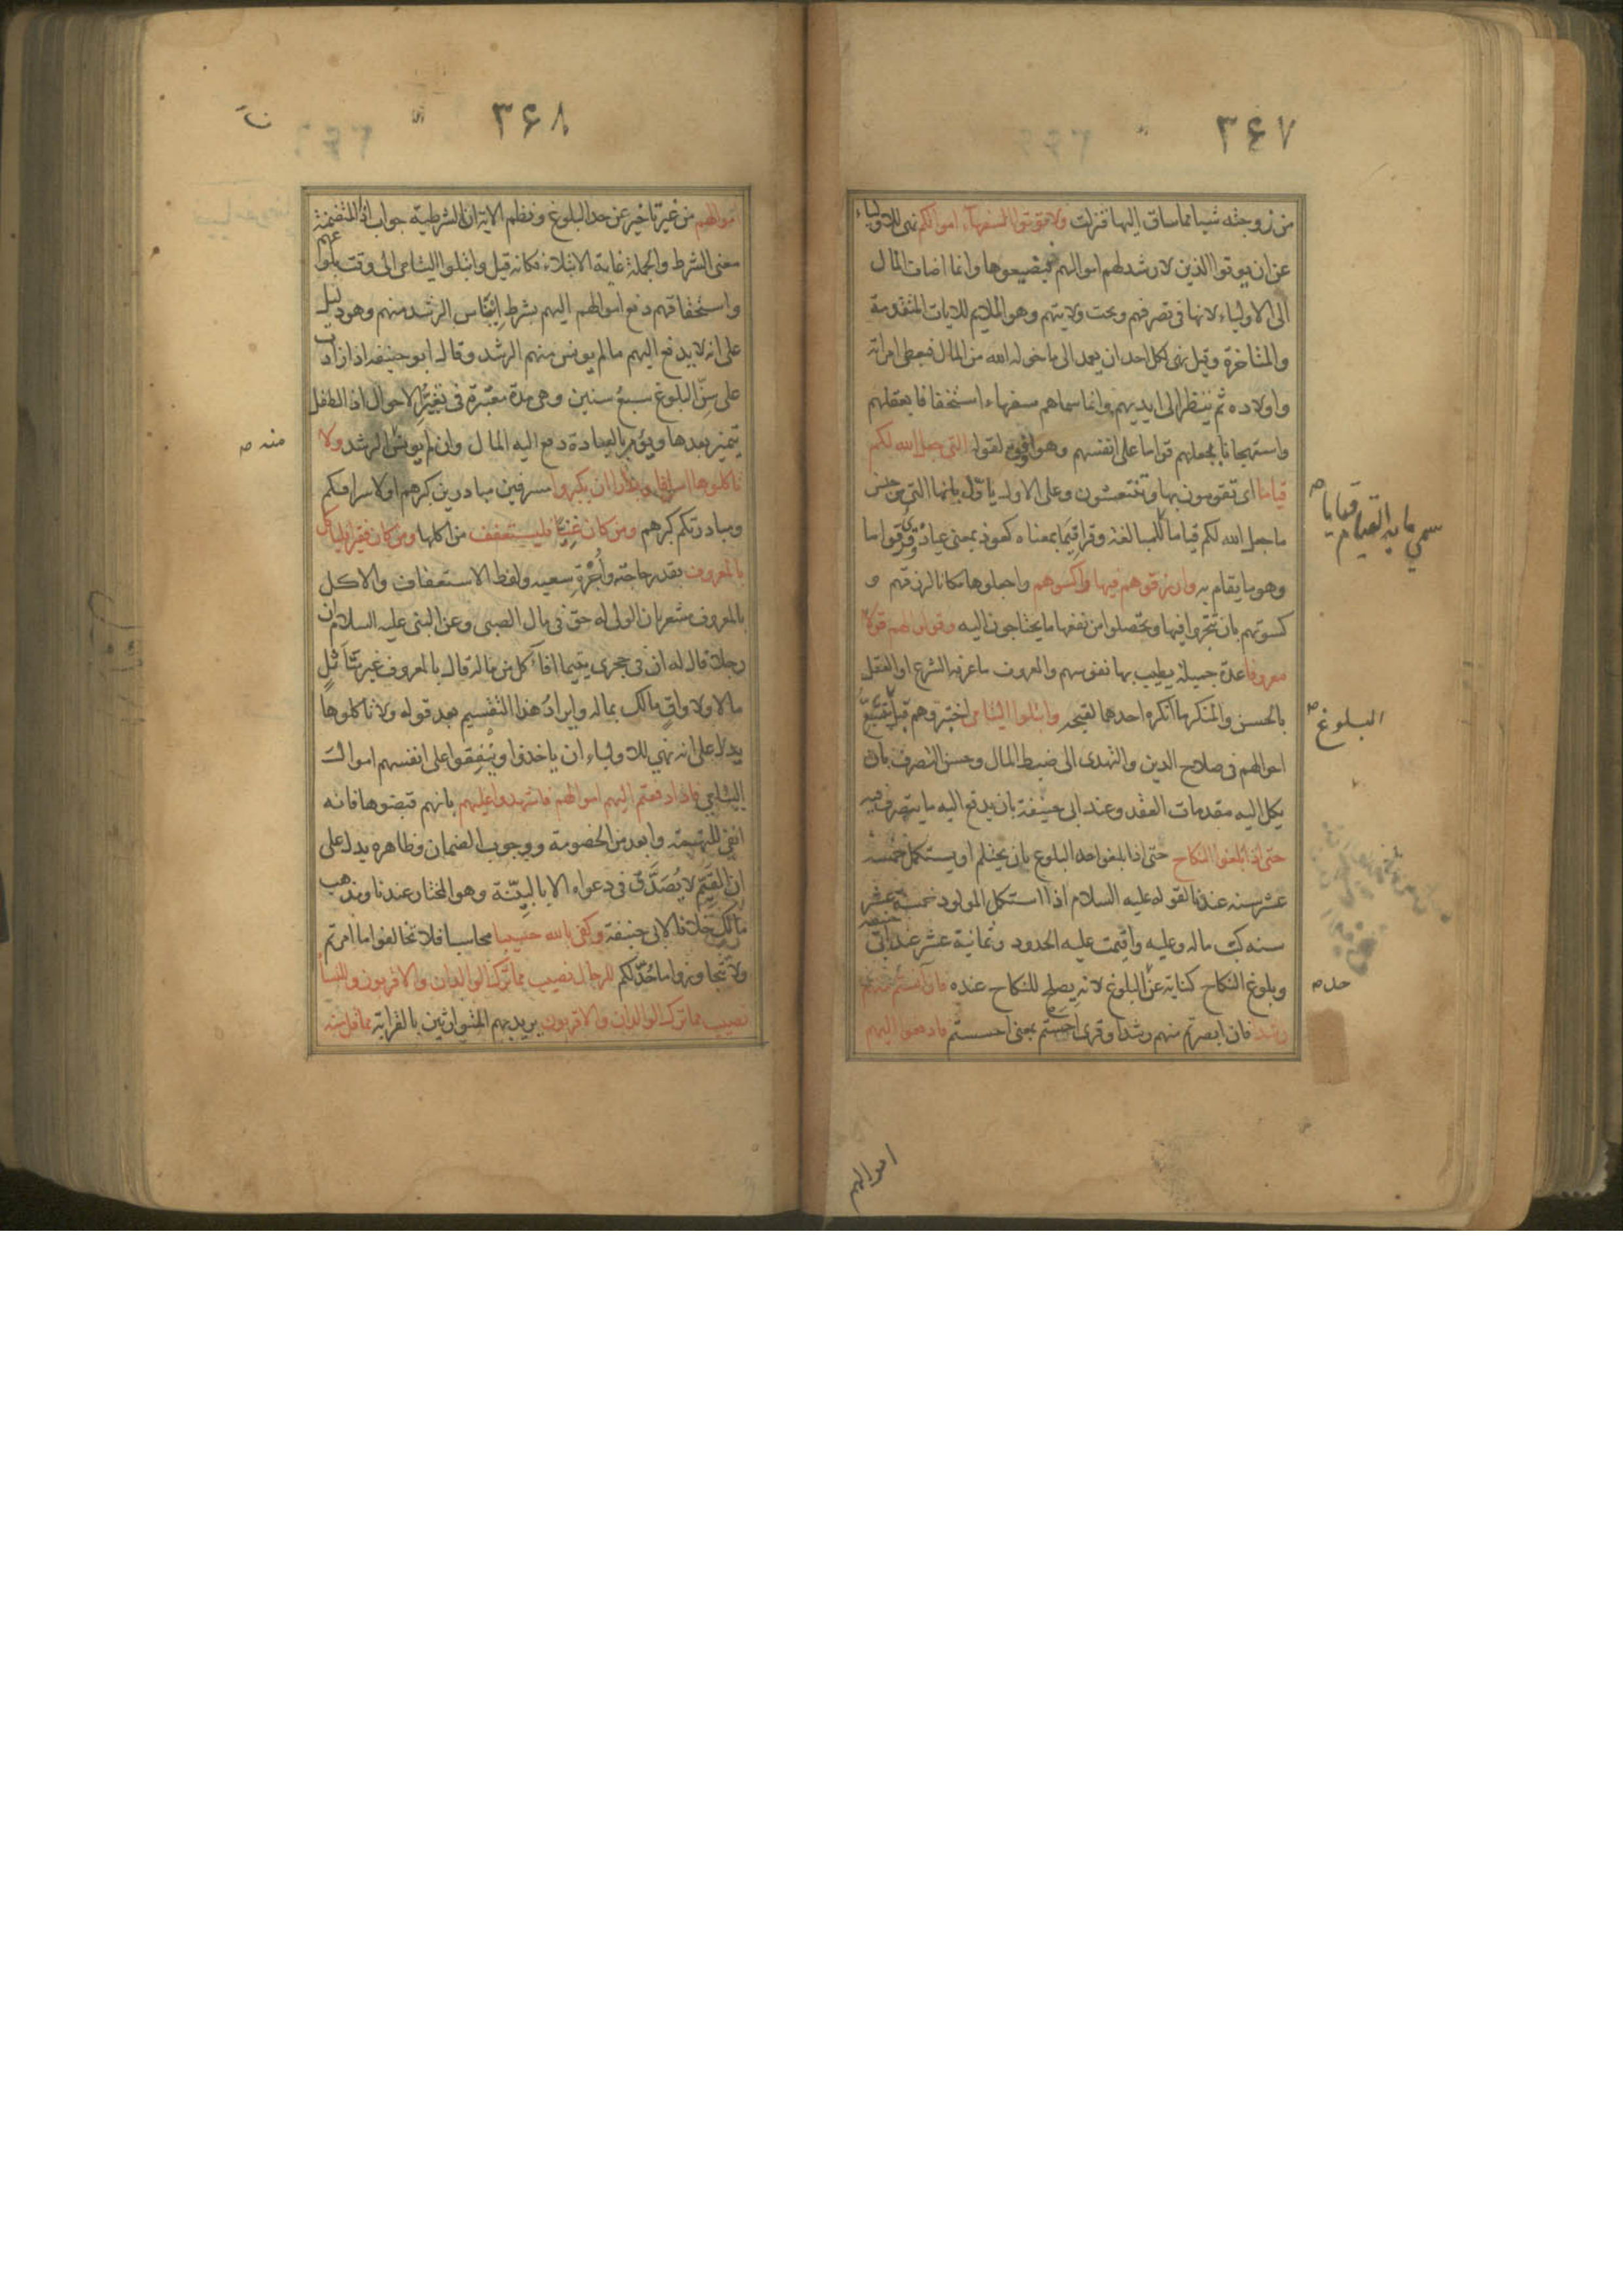 ٣۶٧
من زوجته شيئا مما ساق اليها فنزلت ولا توتوا السفهاء اموالكم نهى للاولياء
عن ان يوتوا الذين لا رشد لهم اموالهم فيضيعوها وانما اضاف المال
الى الاولياء لانها فى تصرفهم وتحت ولايتهم وهو الملايم للايات المتقدمة
والمتاخرة وقيل نهى لكل احد ان يعمد الى ما خوله الله من المال فيعطى امراته
واولاده ثم ينظر الى ايديهم وانما سماهم سفهاء استخفافا بعقلهم
واستهجانا بجعلهم قواما على انفسهم وهو اوفق لقوله التى جعل الله لكم
قياما اى تقومون بها وتنتعشون وعلى الاول ياول بانها التى من جنس
ما جعل الله لكم قياما للمبالغة وقرا قيما بمعناه كعوذ بمعنى عياذ وقرى قواما
وهو ما يقام به وارزقوهم فيها واكسوهم واجعلوها مكانا لرزقهم و
كسوتهم بان تتجروا فيها وتحصلوا من نفعها ما يحتاجون اليه وقولوا لهم قولا
معروفا عدة جميلة يطيب بها نفوسهم والمعروف ما عرفه الشرع او العقل
بالحسن والمنكر ما انكره احدهما لقبحه وابتلوا اليتامى اختبروهم قبل بتتبع
احوالهم فى صلاح الدين والتهدى الى ضبط المال وحسن التصرف بان
يكل اليه مقدمات العقد وعند ابى حنيفة بان يدفع اليه ما يتصرف فيه
حتى اذا بلغوا النكاح حتى اذا بلغوا حد البلوغ بان يحتلم او يستكمل خمس
عشر سنه عندنا لقوله عليه السلام اذا استكمل المولود خمسة عشر
سنه كتب ماله وعليه واقيمت عليه الحدود وثمانية عشر عند ابى حنيفه
وبلوغ النكاح كناية عن البلوغ لانه يصلح للنكاح عنده فان انستم منهم
رشدا فان ابصرتم منهم رشدا وقرى احستم بمعنى احسستم فادفعوا اليهم
سمي ما به القيام قياما
البلوغ
حد
اموالهم
٣۶٨
اموالهم من غير تاخير عن حد البلوغ ونظم الاية ان الشرطية جواب اذا المتضمنة
معنى الشرط والجملة غاية الابتلاء فكانه قيل وابتلوا اليتامى الى وقت بلوغهم
واستحقاقهم دفع اموالهم اليهم بشرط ايناس الرشد منهم وهو دليل
على انه لا يدفع اليهم ما لم يونس منهم الرشد وقال ابو حنيفه اذا زادت
على سن البلوغ سبع سنين وهى مدة معتبرة فى تغير الاحوال اذ الطفل
يتميز بعدها ويؤمر بالعبادة دفع اليه المال وان لم يونس الرشد ولا
تاكلوها اسرافا وبدارا ان يكبروا مسرفين مبادرين كبرهم او لاسرافكم
ومبادرتكم كبرهم ومن كان غنيا فليستعفف من اكلها ومن كان فقيرا فلياكل
بالمعروف بقدر حاجته واجرة سعيه ولفظ الاستعفاف والاكل
بالمعروف مشعر بان الولى له حق فى مال الصبى وعن النبى عليه السلام ان
رجلا قال له ان فى حجرى يتيما افاكل من ماله قال بالمعروف غير متاثل
مالا ولا واق مالك بماله وايراد هذا التقسيم بعد قوله ولا تاكلوها
يدل على انه نهي للاولياء ان ياخذوا وينفقوا على انفسهم اموال
اليتامي فاذا دفعتم اليهم اموالهم فاشهدوا عليهم بانهم قبضوها فانه
انفى للتهمة وابعد من الخصومة ووجوب الضمان وظاهره يدل على
ان القيم لا يصدق فى دعواه الا بالبينة وهو المختار عندنا ومذهب
مالك خلافا لابى حنيفة وكفى بالله حسيبا محاسبا فلا تخالفوا ما امرتم
ولا تتجاوزوا ما حد لكم للرجال نصيب مما ترك الوالدان والاقربون وللنساء
نصيب مما ترك الوالدان والاقربون يريد بهم المتوارثين بالقرابة مما قل منه
منه